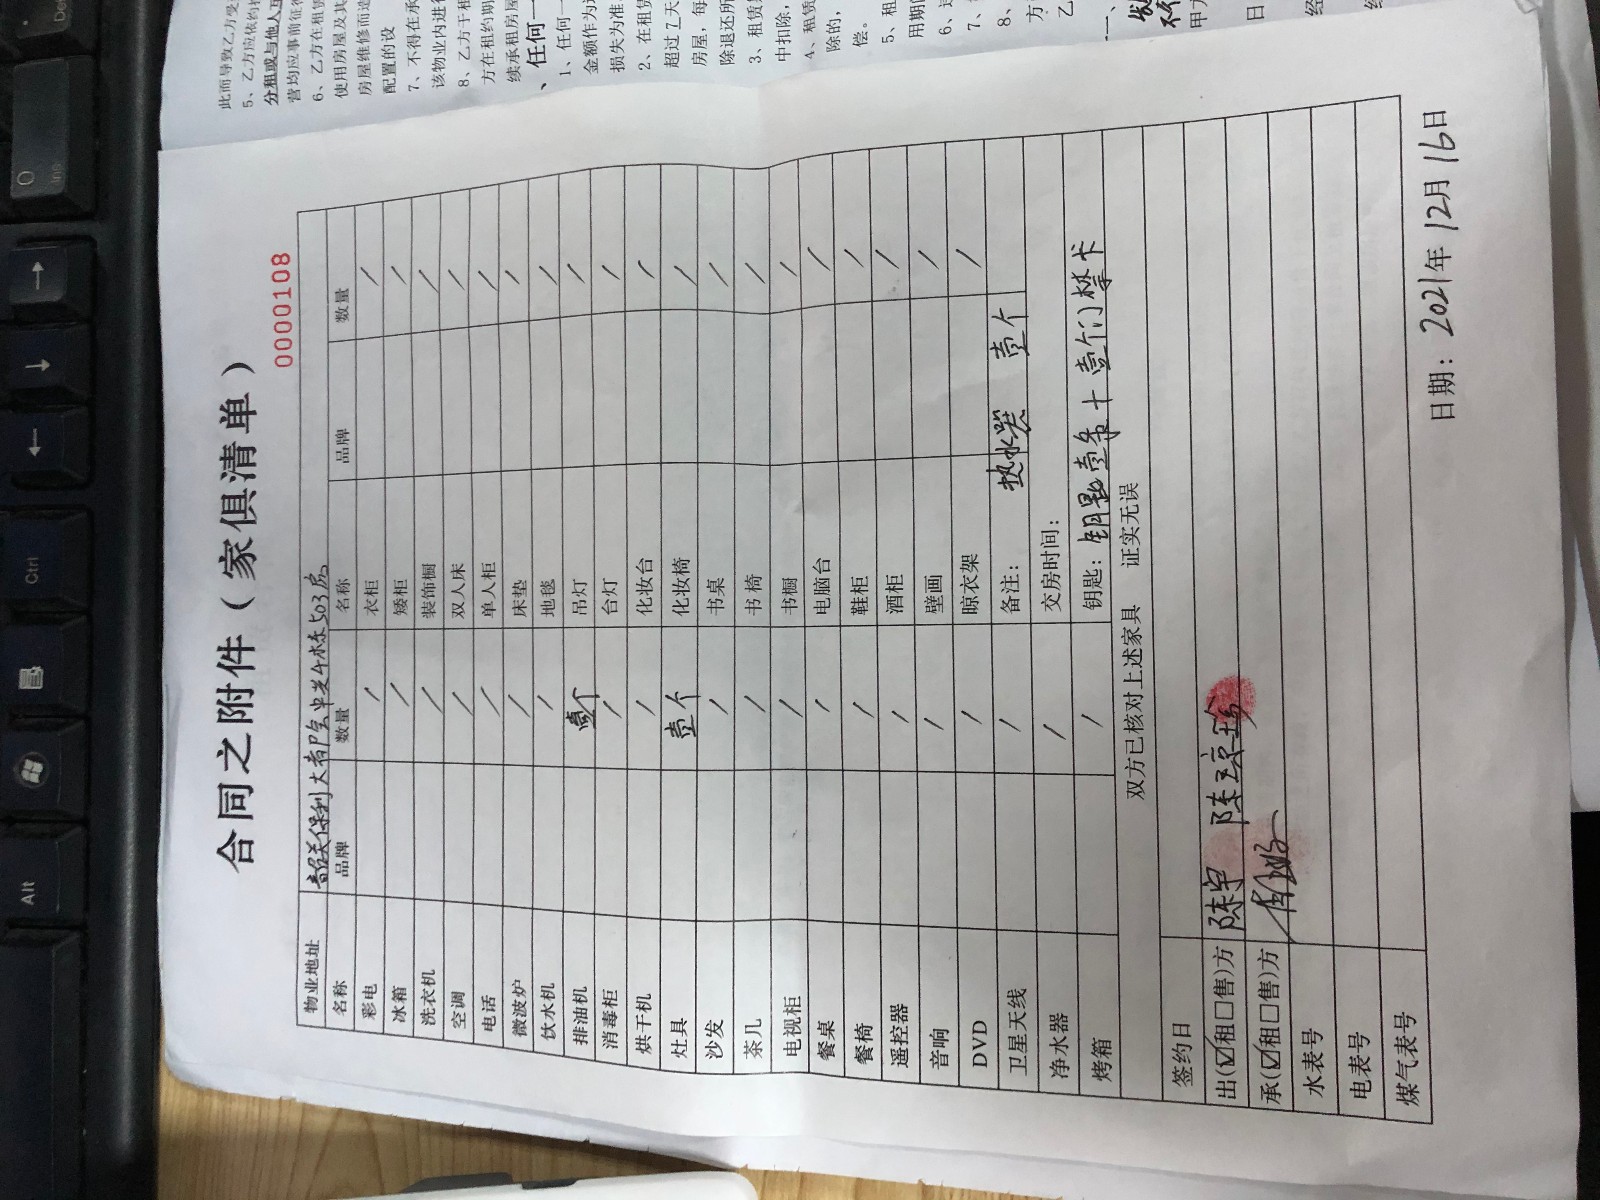 合同之附件（家俱清单）
0000108
物业地址 韶关保利大都会中央4栋503房
名称 品牌 数量 名称 品牌 数量
彩电 / 衣柜 /
冰箱 / 矮柜 /
洗衣机 / 装饰橱 /
空调 / 双人床 /
电话 / 单人柜 /
微波炉 / 床垫 /
饮水机 / 地毯 /
排油机 壹个 吊灯 /
消毒柜 / 台灯 /
烘干机 / 化妆台 /
灶具 壹个 化妆椅 /
沙发 / 书桌 /
茶几 / 书椅 /
电视柜 / 书橱 /
餐桌 / 电脑台 /
餐椅 / 鞋柜 /
遥控器 / 酒柜 /
音响 / 壁画 /
DVD / 晾衣架 /
卫星天线 / 备注： 热水器 壹个
净水器 / 交房时间：
烤箱 / 钥匙：钥匙壹条+壹个门禁卡
双方已核对上述家具 证实无误
签约日
出(☑租□售)方 陈宇
承(☑租□售)方
水表号
电表号
煤气表号
日期：2021年12月16日
此而导致乙方受
5、乙方应依约
分租或与他人互
营均应事前征得
6、乙方在租赁
使用房屋及其
房屋维修而造
配置的设
7、不得在承
该物业内进行
8、乙方于租
方在租约期
续承租房屋
、任何一
1、任何一
金额作为违
损失为准
2、在租赁
超过7天
房屋，每
除退还所
3、租赁
中扣除，
4、租赁
除的，
偿。
5、租
用期
6、
7、
8、
方
乙
甲方
日
Alt
Ctrl
0
Ins
Del